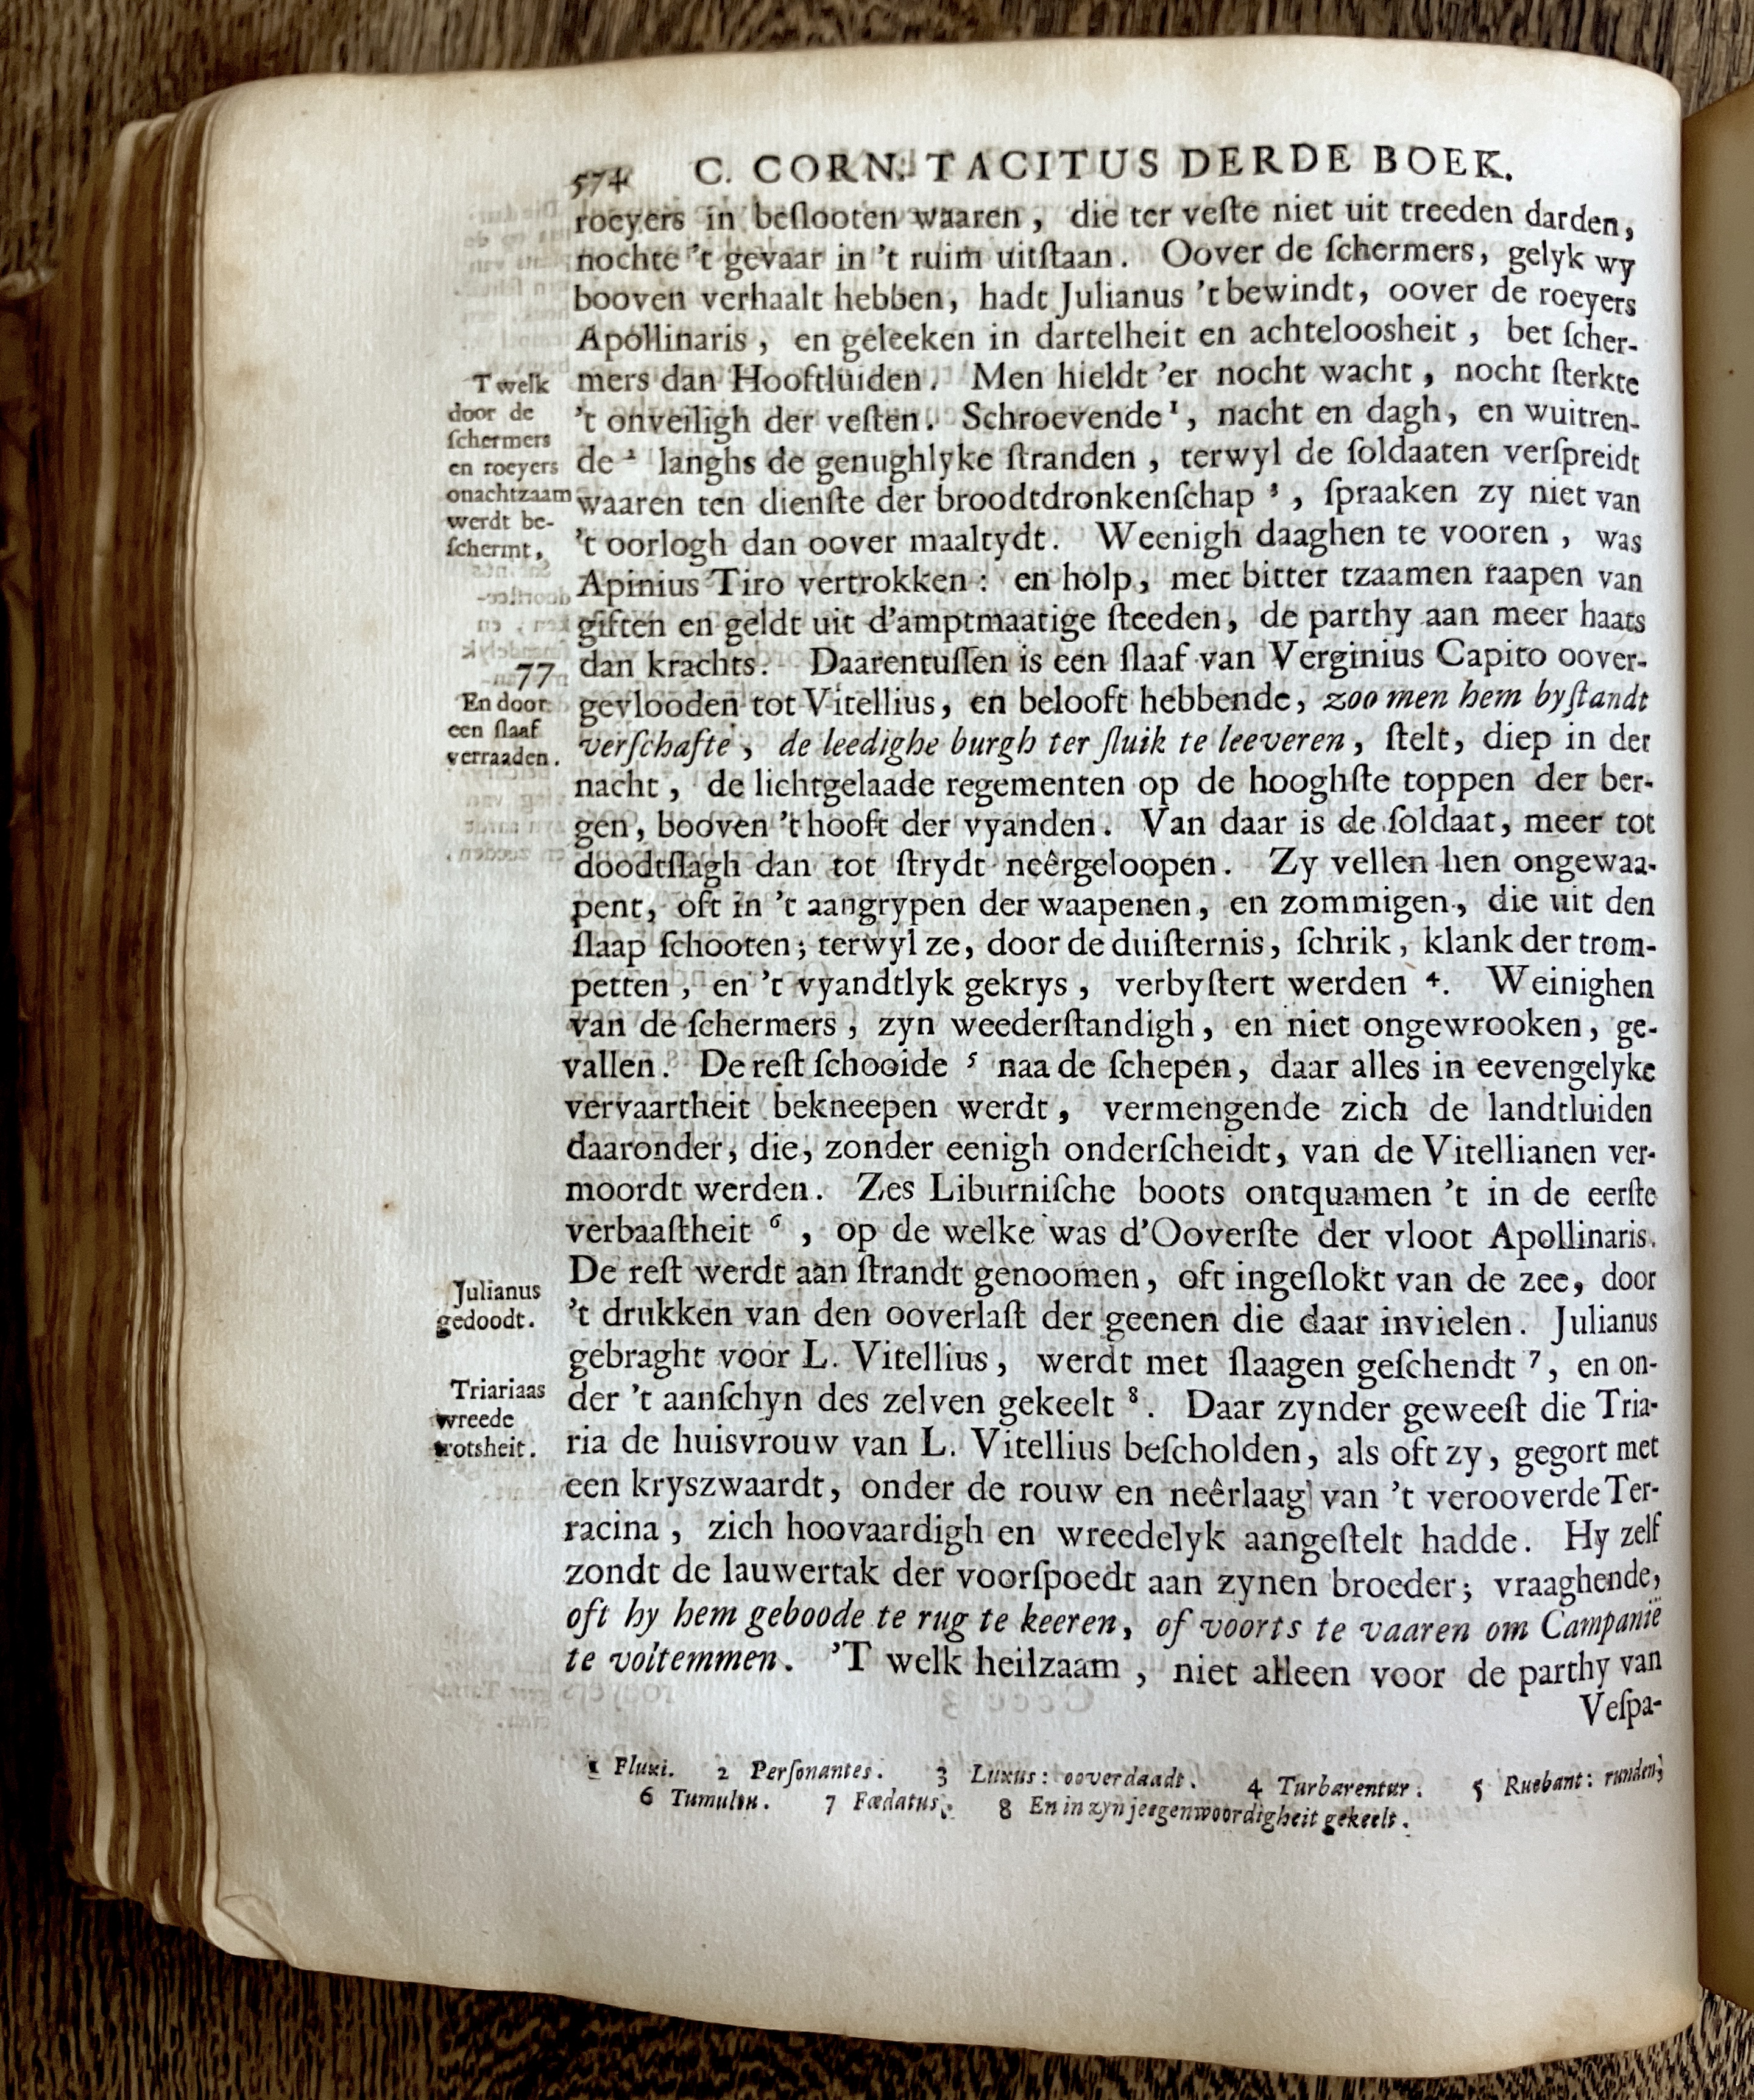 574 C. CORN: TACITUS DERDE BOEK.
roeyers in beſlooten waaren, die ter veſte niet uit treeden darden,
nochte 't gevaar in 't ruim uitſtaan. Oover de ſchermers, gelyk wy
booven verhaalt hebben, hadt Julianus 't bewindt, oover de roeyers
Apollinaris, en geleeken in dartelheit en achteloosheit, bet ſcher-
mers dan Hooftluiden. Men hieldt 'er nocht wacht, nocht ſterkte
't onveiligh der veſten. Schroevende 1, nacht en dagh, en wuitren-
de 2 langhs de genughlyke ſtranden, terwyl de ſoldaaten verſpreidt
waaren ten dienſte der broodtdronkenſchap 3, ſpraaken zy niet van
't oorlogh dan oover maaltydt. Weenigh daaghen te vooren, was
Apinius Tiro vertrokken: en holp, met bitter tzaamen raapen van
giften en geldt uit d'amptmaatige ſteeden, de parthy aan meer haats
dan krachts. Daarentuſſen is een ſlaaf van Verginius Capito oover-
gevlooden tot Vitellius, en belooft hebbende, zoo men hem byſtandt
verſchafte, de leedighe burgh ter ſluik te leeveren, ſtelt, diep in der
nacht, de lichtgelaade regementen op de hooghſte toppen der ber-
gen, booven 't hooft der vyanden. Van daar is de ſoldaat, meer tot
doodtſlagh dan tot ſtrydt neêrgeloopen. Zy vellen hen ongewaa-
pent, oft in 't aangrypen der waapenen, en zommigen, die uit den
ſlaap ſchooten; terwyl ze, door de duiſternis, ſchrik, klank der trom-
petten, en 't vyandtlyk gekrys, verbyſtert werden 4. Weinighen
van de ſchermers, zyn weederſtandigh, en niet ongewrooken, ge-
vallen. De reſt ſchooide 5 naa de ſchepen, daar alles in eevengelyke
vervaartheit bekneepen werdt, vermengende zich de landtluiden
daaronder, die, zonder eenigh onderſcheidt, van de Vitellianen ver-
moordt werden. Zes Liburniſche boots ontquamen 't in de eerſte
verbaaſtheit 6, op de welke was d'Ooverſte der vloot Apollinaris.
De reſt werdt aan ſtrandt genoomen, oft ingeſlokt van de zee, door
't drukken van den ooverlaſt der geenen die daar invielen. Julianus
gebraght voor L. Vitellius, werdt met ſlaagen geſchendt 7, en on-
der 't aanſchyn des zelven gekeelt 8. Daar zynder geweeſt die Tria-
ria de huisvrouw van L. Vitellius beſcholden, als oft zy, gegort met
een kryszwaardt, onder de rouw en neêrlaag van 't verooverde Ter-
racina, zich hoovaardigh en wreedelyk aangeſtelt hadde. Hy zelf
zondt de lauwertak der voorſpoedt aan zynen broeder; vraaghende,
oft hy hem geboode te rug te keeren, of voorts te vaaren om Campanië
te voltemmen. 'T welk heilzaam, niet alleen voor de parthy van
Veſpa-
T welk
door de
ſchermers
en roeyers
onachtzaam
werdt be-
ſchermt,
77
En door
een ſlaaf
verraaden.
Julianus
gedoodt.
Triariaas
wreede
trotsheit.
1 Fluxi. 2 Perſonantes. 3 Luxus: ooverdaadt. 4 Turbarentur. 5 Ruebant: runden;
6 Tumultu. 7 Fœdatus. 8 En in zyn jeegenwoordigheit gekeelt.